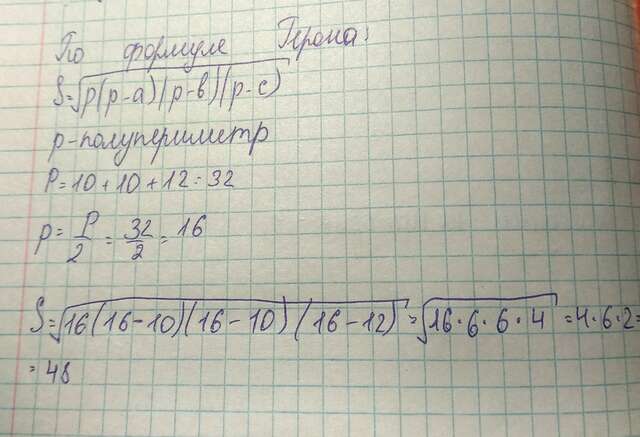 По формуле Герона:
S=√p(p-a)(p-в)(p-c)
р-полупериметр
P=10+10+12=32
p=P/2=32/2=16
S=√16(16-10)(16-10)(16-12)=√16·6·6·4=4·6·2=
=48